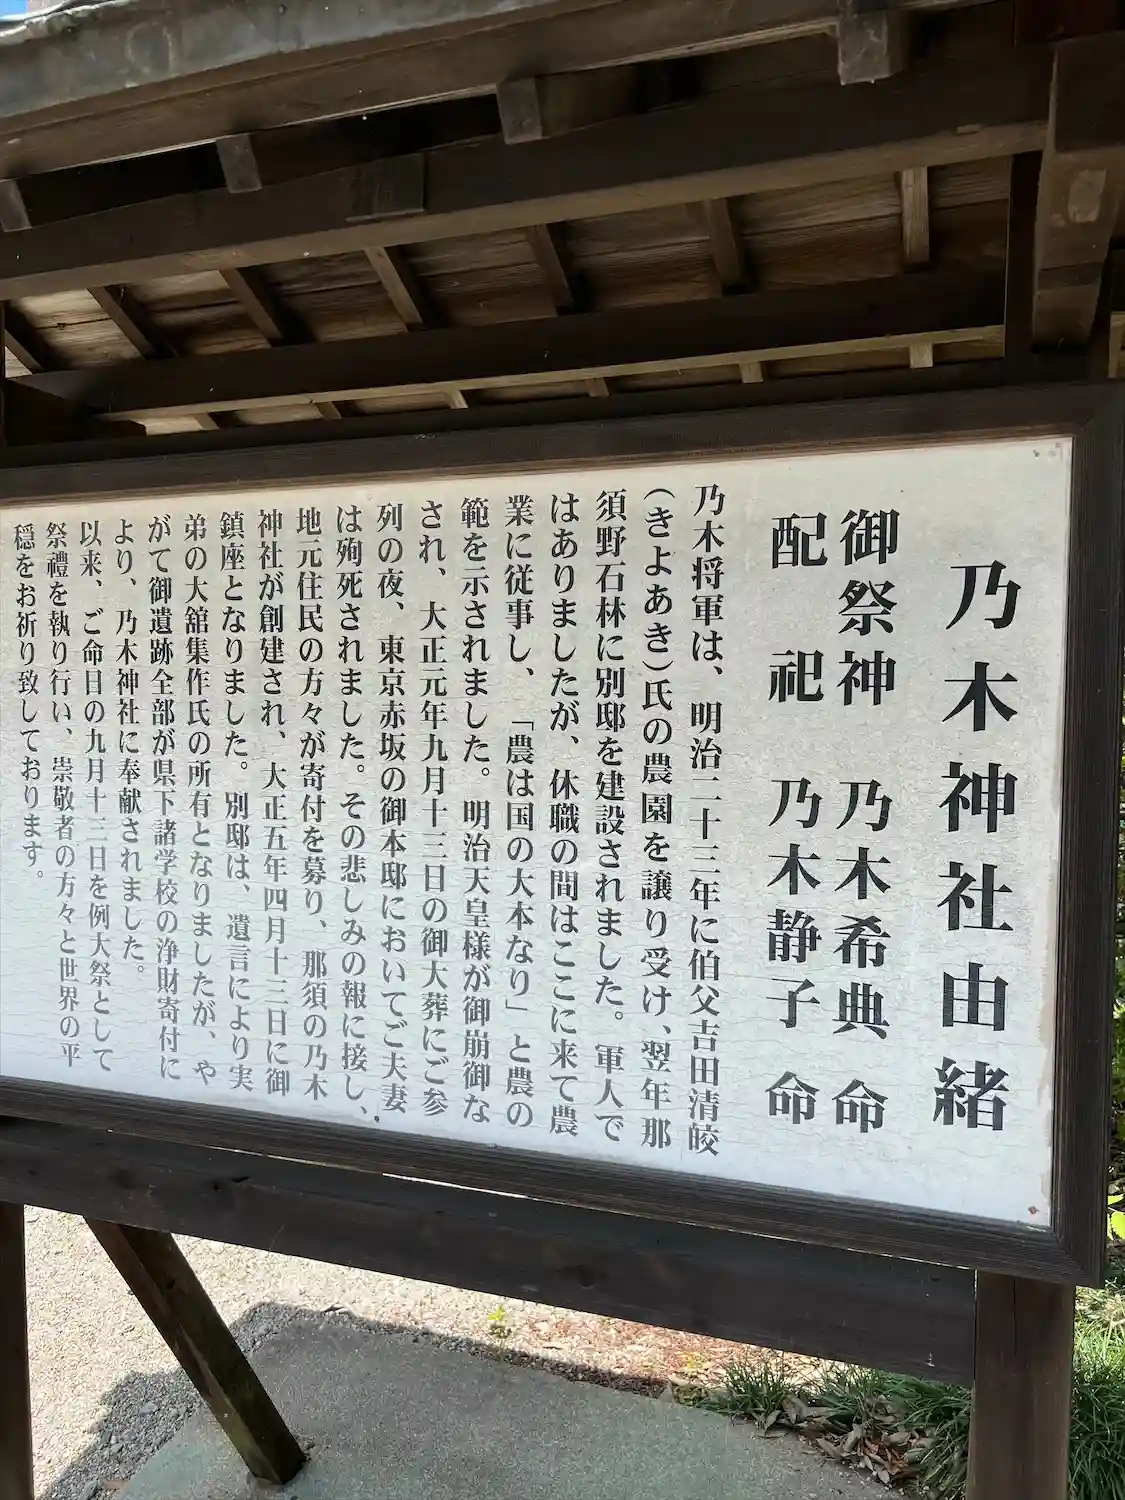 乃木神社由緒
御祭神　乃木希典　命
配　祀　乃木静子　命
乃木将軍は、明治二十三年に伯父吉田清皎
(きよあき)氏の農園を譲り受け、翌年那
須野石林に別邸を建設されました。軍人で
はありましたが、休職の間はここに来て農
業に従事し、「農は国の大本なり」と農の
範を示されました。明治天皇様が御崩御な
され、大正元年九月十三日の御大葬にご参
列の夜、東京赤坂の御本邸においてご夫妻
は殉死されました。その悲しみの報に接し、
地元住民の方々が寄付を募り、那須の乃木
神社が創建され、大正五年四月十三日に御
鎮座となりました。別邸は、遺言により実
弟の大舘集作氏の所有となりましたが、や
がて御遺跡全部が県下諸学校の浄財寄付に
より、乃木神社に奉献されました。
以来、ご命日の九月十三日を例大祭として
祭禮を執り行い、崇敬者の方々と世界の平
穏をお祈り致しております。